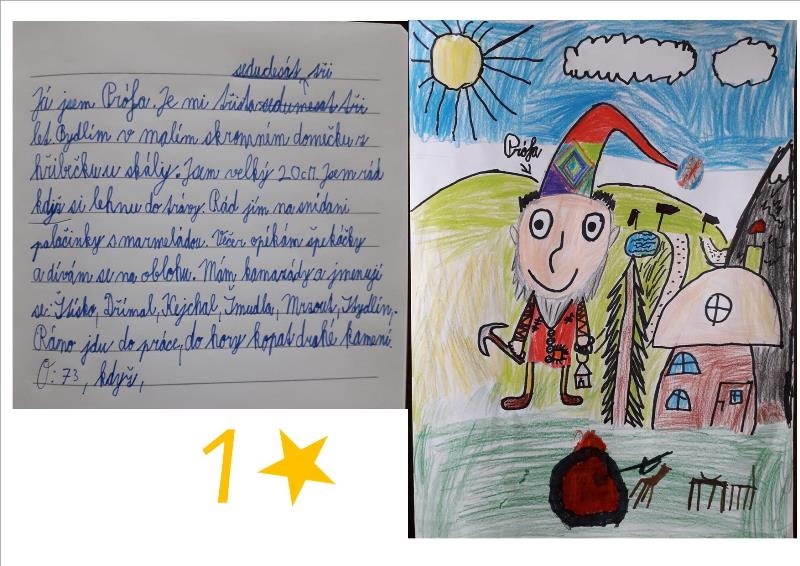 sedudesát tři
Já jsem Prófa. Je mi třista sedumesat tři
let. Bydlím v malím skromném domečku z
hřibečku u skály. Jsem velký 20cm. Jsem rád
když si lehnu do trávy. Rád jím na snídani
palačinky s marmeládou. Večer opékám špekáčky
a dívám se na oblohu. Mám kamarády a jmenují
se: Štísko, Dřímal, Kejchal, Šmudla, Mrzout, Stydlín.
Ráno jdu do práce, do hory kopat drahé kamení.
O: 73, když,
1
Prófa